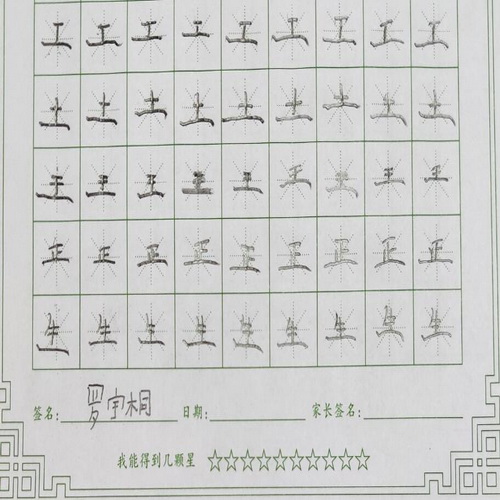 工工工工工工工工工
土土土土土土土土土
王王王王王王王王王
正正正正正正正正正
生生生生生生生生生
签名：罗宇桐 日期： 家长签名：
我能得到几颗星 ☆☆☆☆☆☆☆☆☆☆